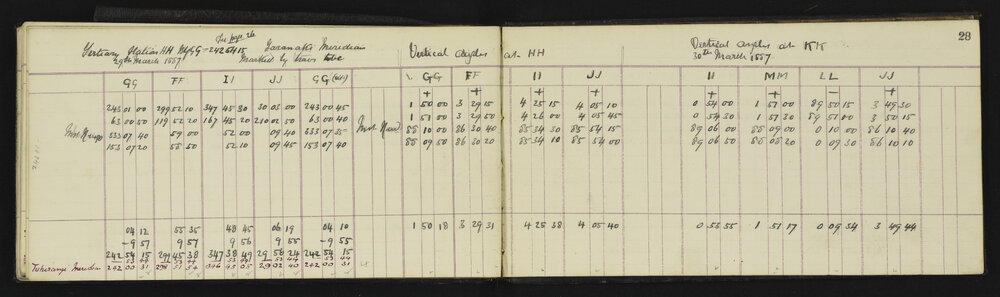 See page 26 28
Tertiary Station HH Mg GG = 242 54 15 Taranaki Meridian Vertical angles at HH Vertical angles at KK
29th March 1887 Marked by 30th March 1887
GG FF II JJ GG GG FF II JJ II MM LL JJ
+ + + + + + - +
243 01 00 299 52 10 347 45 30 30 03 00 243 00 45 1 50 00 3 29 15 4 25 15 4 05 10 0 54 00 1 51 00 89 50 15 3 49 30
63 00 50 119 52 20 167 45 20 210 02 50 63 00 40 1 51 00 3 29 50 4 26 00 4 05 45 0 54 30 1 51 30 89 51 00 3 50 00
333 07 40 59 00 52 00 09 40 333 07 35 88 10 00 86 30 40 85 34 30 85 54 15 89 06 00 88 09 00 0 10 00 86 10 40
153 07 20 58 50 52 10 09 45 153 07 40 88 09 50 86 30 20 85 34 10 85 54 00 89 06 50 88 08 20 0 09 30 86 10 10
04 12 55 35 48 45 06 19 04 10 1 50 18 3 29 31 4 25 38 4 05 40 0 53 55 1 51 17 0 09 34 3 49 44
-9 57 9 57 9 56 9 55 -9 55
242 54 15 299 45 38 347 38 49 29 56 24 242 54 15
Meridian 242 00 31